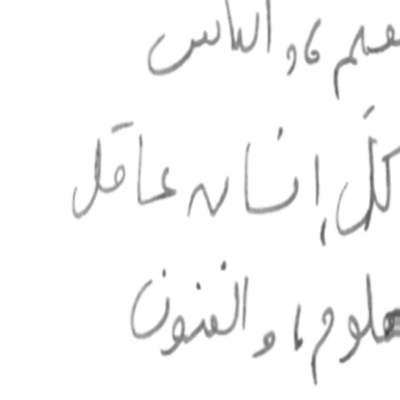 و الناس
كلّ إنسان عاقل
علوم، و الفنون